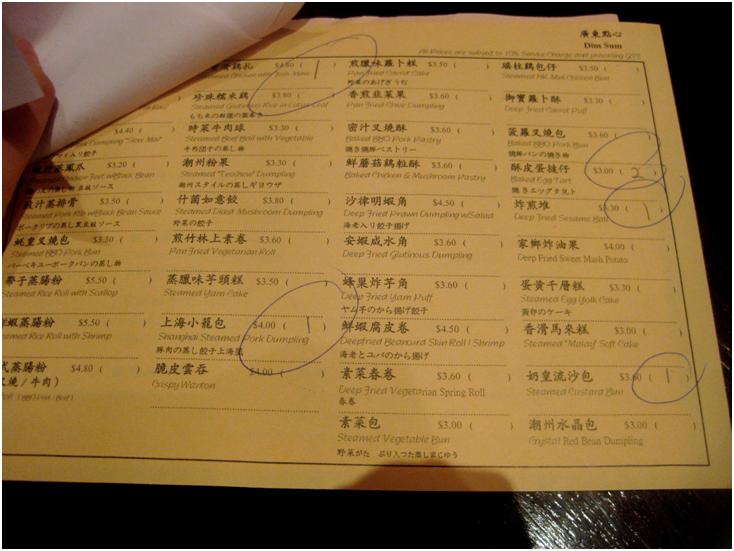 廣東點心
Dim Sum
All Prices are subject to 10% Service Charge and prevailing GST
$4.80 ( 1 )
Steamed Chicken with
珍珠糯米鷄 $3.80 ( )
Steamed Glutinous Rice in Lotus Leaf
時菜牛肉球 $3.30 ( )
Steamed Beef Ball with Vegetable
牛肉団子の蒸し物
潮州粉果 $3.30 ( )
Steamed "Teochew" Dumpling
潮州スタイルの蒸しギョウザ
什菌如意餃 $3.80 ( )
Steamed Diced Mushroom Dumpling
野菜の餃子
煎竹林上素卷 $3.60 ( )
Pan Fried Vegetarian Roll
蒸臘味芋頭糕 $3.50 ( )
Steamed Yam Cake
上海小籠包 $4.00 ( 1 )
Shanghai Steamed Pork Dumpling
豚肉の蒸し餃子上海風
脆皮雲吞 $4.00 ( )
Crispy Wanton
$4.40 ( )
Pork Dumpling "Siew Mai"
$3.20 ( )
豉汁蒸排骨 $3.50 ( )
Steamed Pork Rib w/Black Bean Sauce
蚝皇叉燒包 $3.30 ( )
Steamed BBQ Pork Bun
バーベキューポークバンの蒸し物
帶子蒸腸粉 $5.50 ( )
Steamed Rice Roll with Scallop
鮮蝦蒸腸粉 $5.50 ( )
Steamed Rice Roll with Shrimp
式蒸腸粉 $4.80 ( )
叉燒/牛肉)
煎臘味蘿卜糕 $3.50 ( )
Pan Fried Carrot Cake
野菜のあげぎょうむ
香煎韭菜果 $3.60 ( )
Pan Fried Chive Dumpling
密汁叉燒酥 $3.60 ( )
Baked BBQ Pork Pastry
焼き豚ペストリー
鮮蘑菇鷄粒酥 $3.60 ( )
Baked Chicken & Mushroom Pastry
沙律明蝦角 $4.50 ( )
Deep Fried Prawn Dumpling w/Salad
海老入り餃子揚げ
安蝦咸水角 $3.60 ( )
Deep Fried Glutinous Dumpling
蜂巢炸芋角 $3.60 ( )
Deep Fried Yam Puff
ヤム芋のから揚げ餃子
鮮蝦腐皮卷 $4.50 ( )
Deepfried Beancurd Skin Roll | Shrimp
海老とユバのから揚げ
素菜春卷 $3.60 ( )
Deep Fried Vegetarian Spring Roll
春卷
素菜包 $3.00 ( )
Steamed Vegetable Bun
瑤柱鷄包仔 $3.50 ( )
Steamed HK Mini Chicken Bun
御寶蘿卜酥 $3.30 ( )
Deep Fried Carrot Puff
菠蘿叉燒包 $3.60 ( )
Baked BBQ Pork Bun
焼豚パンの焼き物
酥皮蛋撻仔 $3.00 ( 2 )
Baked Egg Tart
焼きエッグタルト
炸煎堆 $3.30 ( 1 )
Deep Fried Sesame Ball
家鄉炸油果 $4.00 ( )
Deep Fried Sweet Mash Potato
蛋黃千層糕 $3.30 ( )
Steamed Egg Yolk Cake
黄卵のケーキ
香滑馬來糕 $3.00 ( )
Steamed "Malay" Soft Cake
奶皇流沙包 $3.60 ( 1 )
Steamed Custard Bun
潮州水晶包 $3.00 ( )
Crystal Red Bean Dumpling